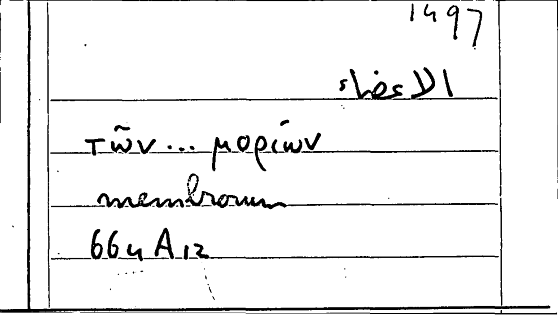 1497
الاعضاء
τῶν... μορίων
membrorum
664 A 12